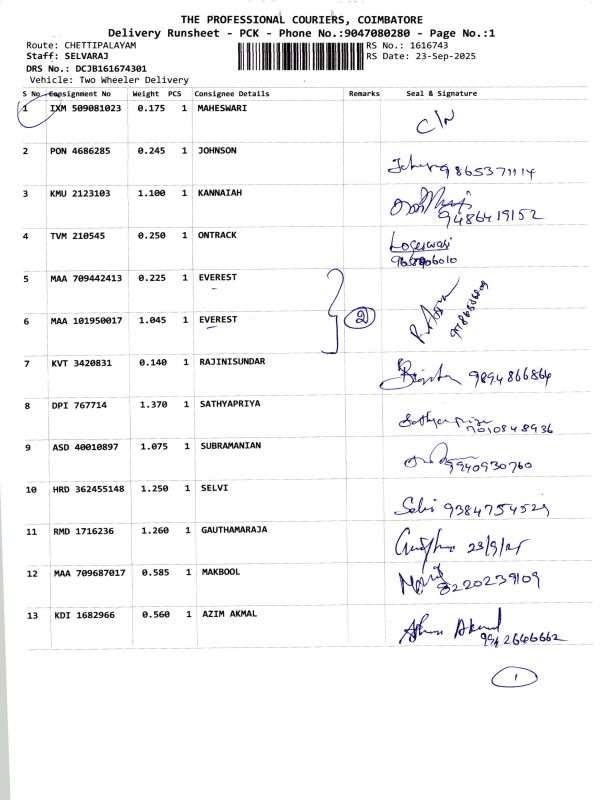 THE PROFESSIONAL COURIERS, COIMBATORE
Delivery Runsheet - PCK - Phone No.:9047080280 - Page No.:1
Route: CHETTIPALAYAM RS No.: 1616743
Staff: SELVARAJ RS Date: 23-Sep-2025
DRS No.: DCJB161674301
Vehicle: Two Wheeler Delivery
S No Consignment No Weight PCS Consignee Details Remarks Seal & Signature
1 IXM 509081023 0.175 1 MAHESWARI C/N
2 PON 4686285 0.245 1 JOHNSON 9865371114
3 KMU 2123103 1.100 1 KANNAIAH 9486419152
4 TVM 210545 0.250 1 ONTRACK Logeswari
5 MAA 709442413 0.225 1 EVEREST
6 MAA 101950017 1.045 1 EVEREST 2
7 KVT 3420831 0.140 1 RAJINISUNDAR 9894866864
8 DPI 767714 1.370 1 SATHYAPRIYA Sathyapriya 7010848936
9 ASD 40010897 1.075 1 SUBRAMANIAN 9940930760
10 HRD 362455148 1.250 1 SELVI Selvi 9384754529
11 RMD 1716236 1.260 1 GAUTHAMARAJA 23/9/25
12 MAA 709687017 0.585 1 MAKBOOL 8220239109
13 KDI 1682966 0.560 1 AZIM AKMAL Akmal 9942646662
1